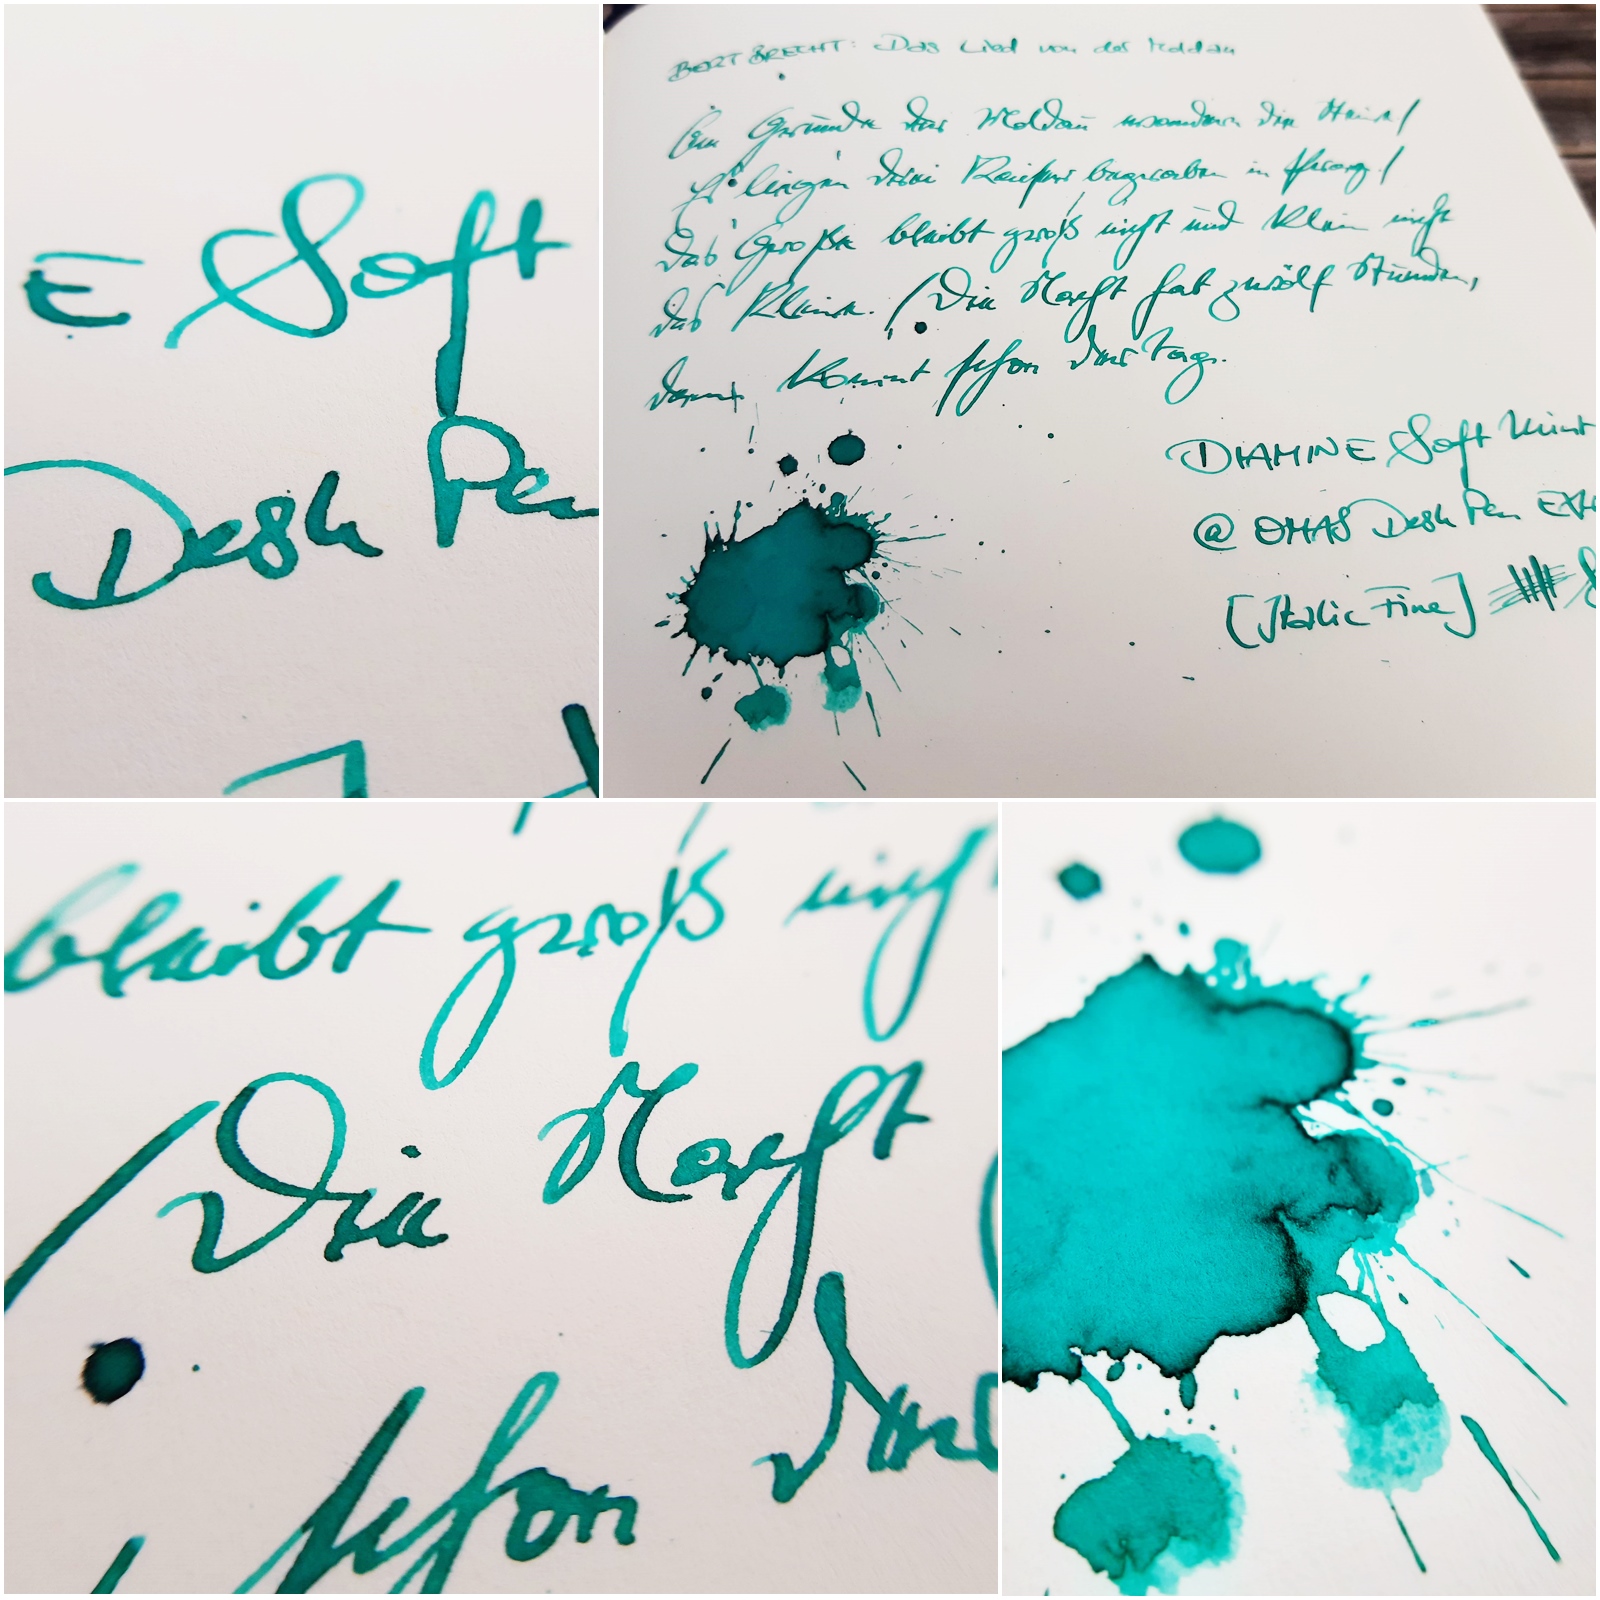 E Soft
Desk Pen
BERT BRECHT: Das Lied von der Moldau
Am Grunde der Moldau wandern die Steine /
Es liegen drei Kaiser begraben in Prag. /
Das Große bleibt groß nicht und klein nicht
das Kleine. / Die Nacht hat zwölf Stunden,
dann kommt schon der Tag.
DIAMINE Soft Mint
@ OMAS Desk Pen
[Italic Fine]
bleibt groß
/ Die Nacht
schon der